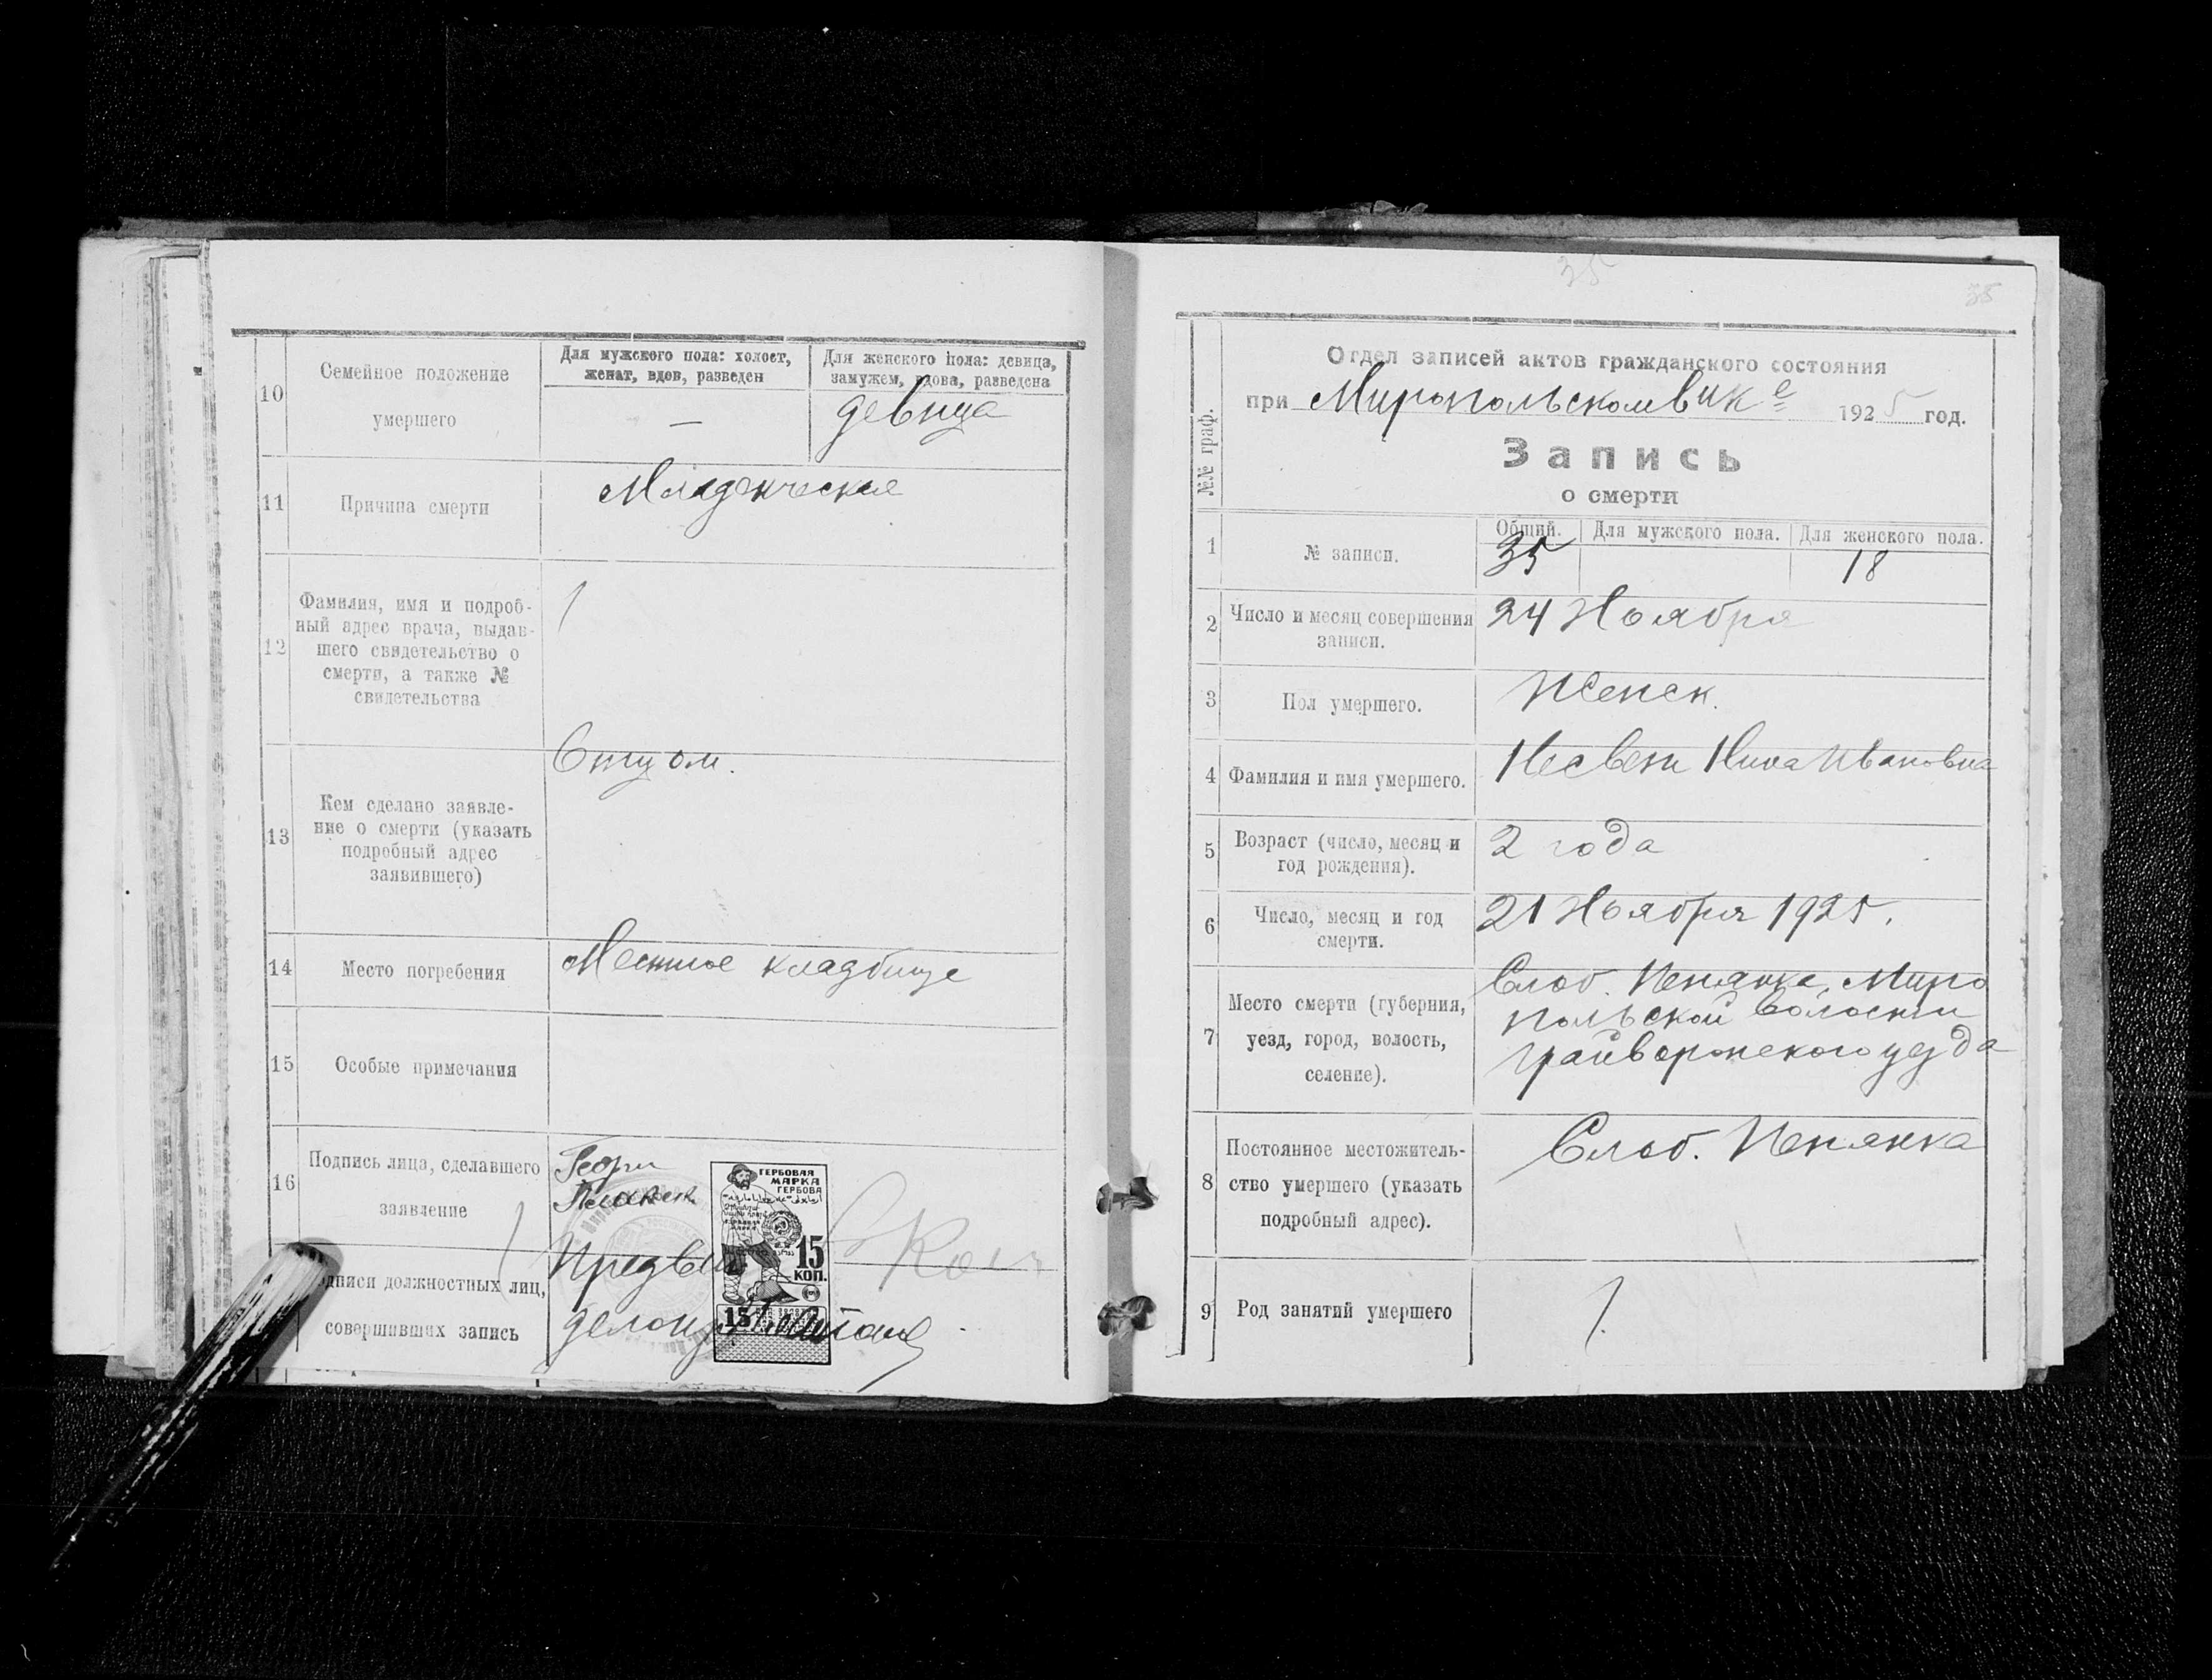 10
Семейное положение
умершего
Для мужского пола: холост,
женат, вдов, разведен
Для женского пола: девица,
замужем, вдова, разведена
—
девица
11
Причина смерти
Младенческая
12
Фамилия, имя и подроб-
ный адрес врача, выдав-
шего свидетельство о
смерти, а также №
свидетельства
13
Кем сделано заявле-
ние о смерти (указать
подробный адрес
заявившего)
Отцом.
14
Место погребения
Местное кладбище
15
Особые примечания
16
Подпись лица, сделавшего
заявление
ГЕРБОВАЯ
МАРКА
ГЕРБОВА
15
КОП.
15
Подписи должностных лиц,
совершивших запись
Предвик
делопр
35
35
№№ граф.
Отдел записей актов гражданского состояния
при Миропольском вике 1925 год.
Запись
о смерти
1
№ записи.
Общий.
Для мужского пола.
Для женского пола.
35
18
2
Число и месяц совершения
записи.
24 Ноября
3
Пол умершего.
Женск.
4
Фамилия и имя умершего.
Несвет Нина Ивановна
5
Возраст (число, месяц и
год рождения).
2 года
6
Число, месяц и год
смерти.
21 Ноября 1925.
7
Место смерти (губерния,
уезд, город, волость,
селение).
Слоб. Пенянка, Миро
польской волости
Грайворонского уезда
8
Постоянное местожитель-
ство умершего (указать
подробный адрес).
Слоб. Пенянка
9
Род занятий умершего